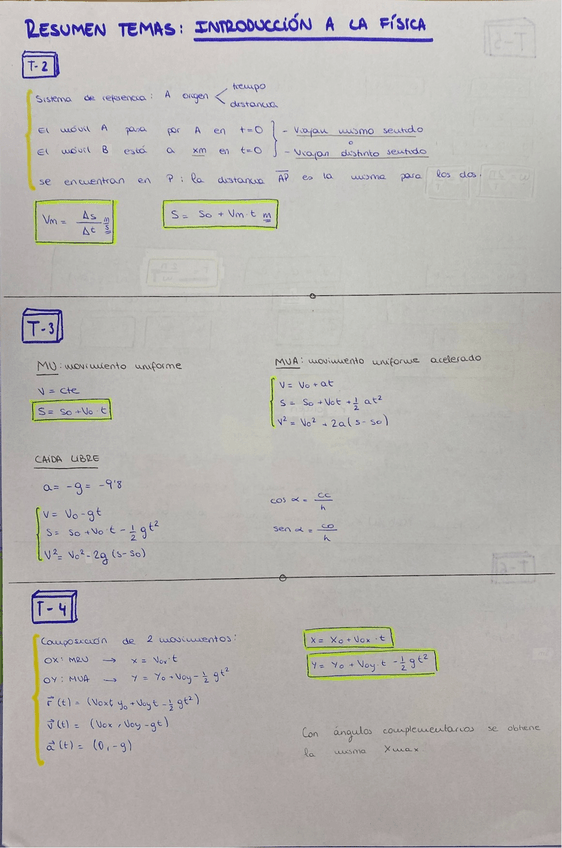 RESUMEN TEMAS: INTRODUCCIÓN A LA FÍSICA
T-2
Sistema de referencia: A origen < tiempo
distancia
El móvil A pasa por A en t=0 - Viajan mismo sentido
o
El móvil B está a xm en t=0 - Viajan distinto sentido
se encuentran en P: la distancia AP es la misma para los dos.
Vm = Δs/Δt m/s
S = So + Vm·t m
T-3
MU: movimiento uniforme
V = cte
S = So + Vo·t
MUA: movimiento uniforme acelerado
V = Vo + at
S = So + Vot + 1/2 at²
V² = Vo² + 2a(s-so)
CAIDA LIBRE
a = -g = -9'8
V = Vo - gt
S = So + Vo·t - 1/2 gt²
V² = Vo² - 2g (s-so)
cos α = cc/h
sen α = co/h
T-4
Composición de 2 movimientos:
OX: MRU → x = Vox·t
OY: MUA → Y = Yo + Voy - 1/2 gt²
r⃗(t) = (Voxt, yo + Voyt - 1/2 gt²)
v⃗(t) = (Vox, Voy - gt)
a⃗(t) = (0, -g)
X = Xo + Vox·t
Y = Yo + Voy·t - 1/2 gt²
Con ángulos complementarios se obtiene
la misma Xmax